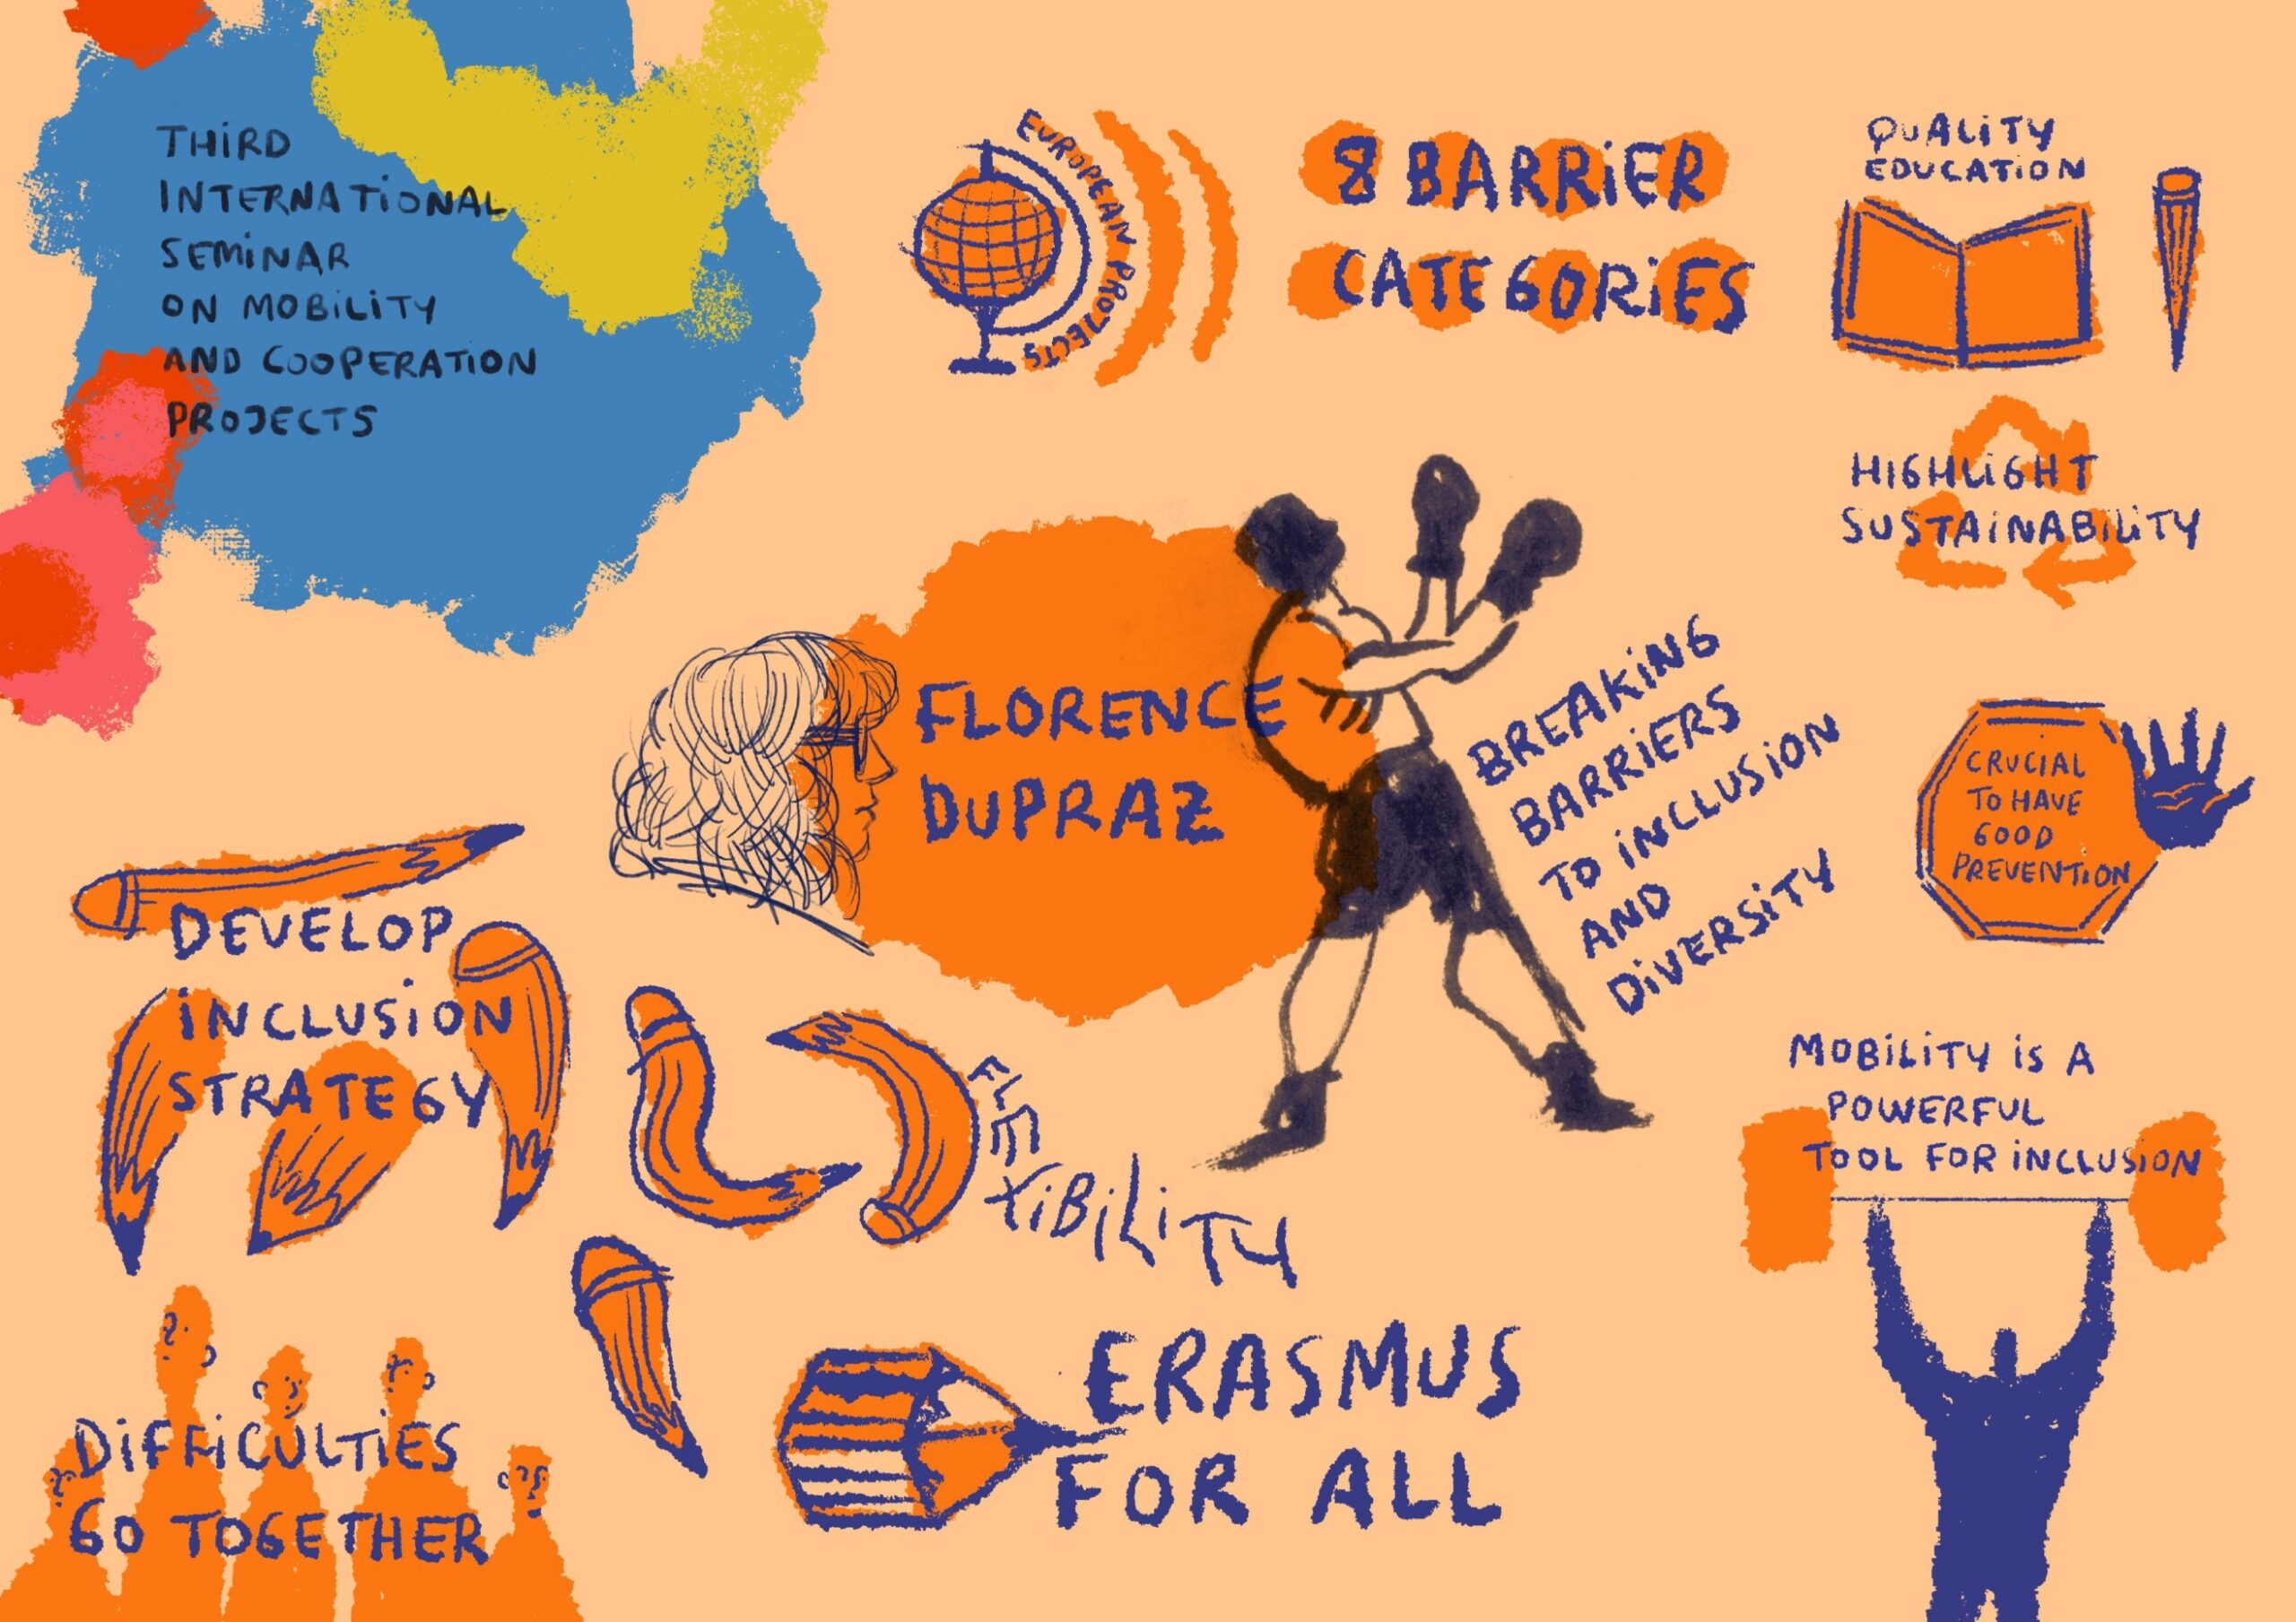 THIRD
INTERNATIONAL
SEMINAR
ON MOBILITY
AND COOPERATION
PROJECTS
EUROPEAN PROJECTS
8 BARRIER
CATEGORIES
QUALITY
EDUCATION
HIGHLIGHT
SUSTAINABILITY
FLORENCE
DUPRAZ
BREAKING
BARRIERS
TO INCLUSION
AND
DIVERSITY
CRUCIAL
TO HAVE
GOOD
PREVENTION
DEVELOP
INCLUSION
STRATEGY
FLEXIBILITY
MOBILITY IS A
POWERFUL
TOOL FOR INCLUSION
DIFFICULTIES
GO TOGETHER
ERASMUS
FOR ALL